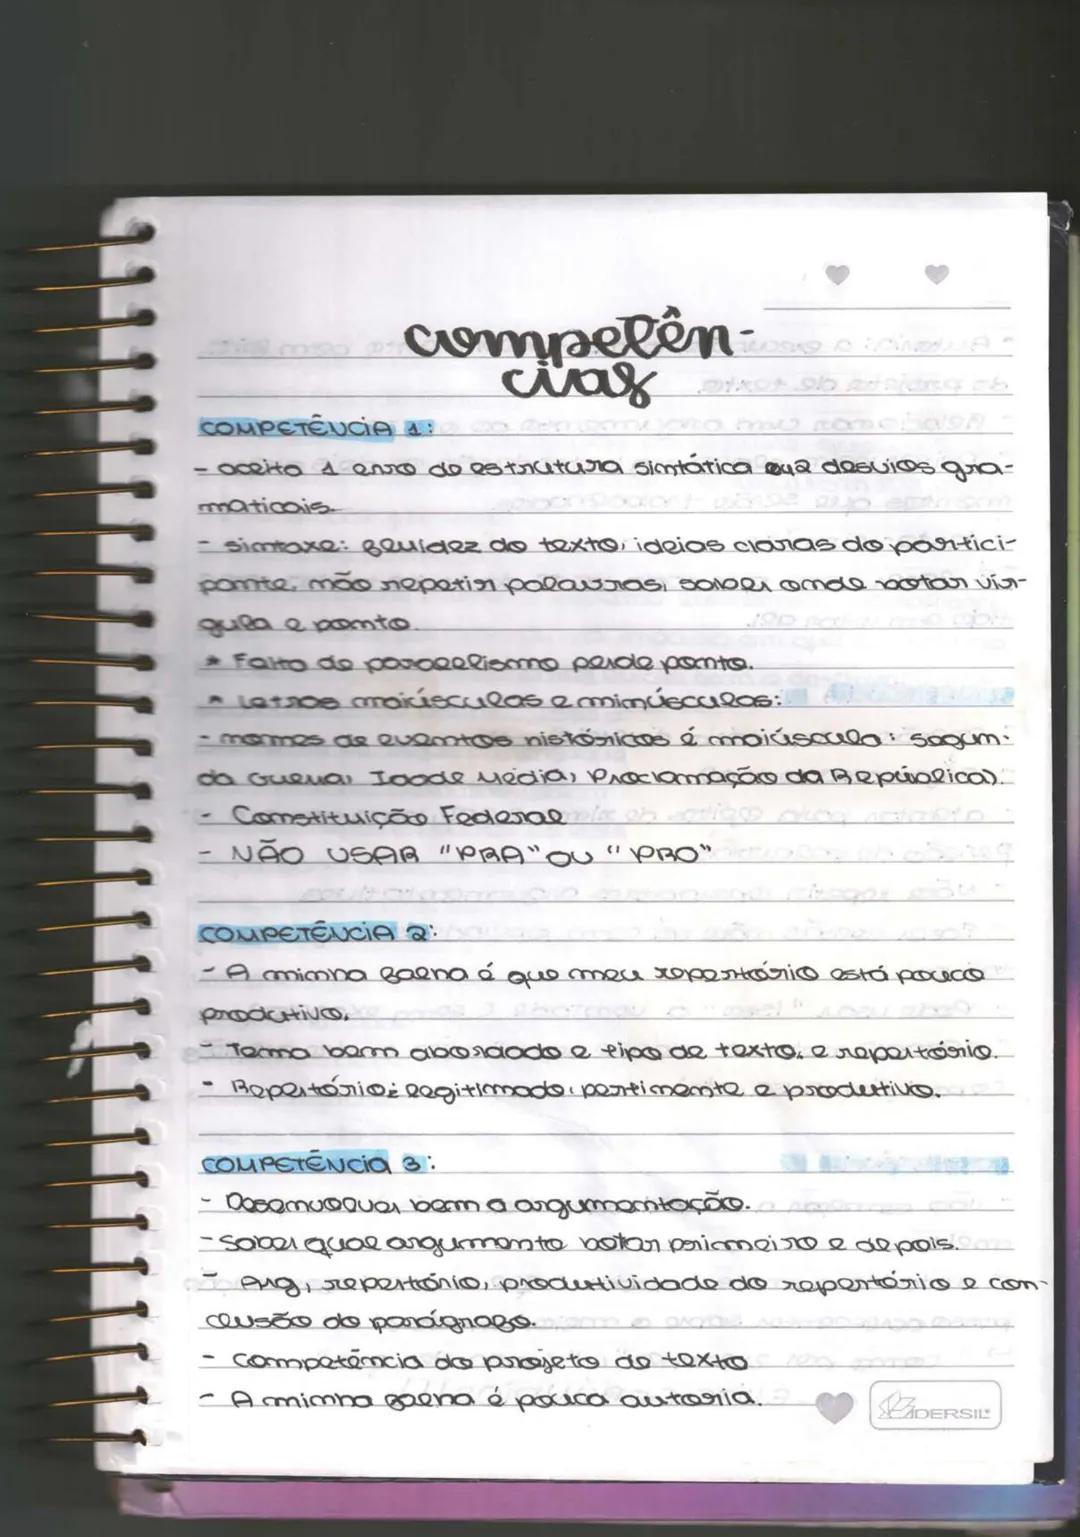 competên-
cias
COMPETÊNCIA 1:
- aceito 1 erro de estrutura sintática e 2 desvios gra-
maticais.
- sintaxe: fluidez do texto, ideias claras do partici-
pante, não repetir palavras, saber onde botar vír-
gula e ponto.
* Falta de paralelismo perde ponto.
* Letras maiúsculas e minúsculas:
- nomes de eventos históricos é maiúscula: Segun-
da Guerra, Idade Média, Proclamação da República).
- Constituição Federal
- NÃO USAR "PRA" OU "PRO"
COMPETÊNCIA 2:
- A minha falha é que meu repertório está pouco
produtivo.
- Tema bem abordado e tipo de texto, e repertório.
- Repertório: legitimado, pertinente e produtivo.
COMPETÊNCIA 3:
- Desenvolver bem a argumentação.
- Saber qual argumento botar primeiro e depois.
- Arg, repertório, produtividade do repertório e con-
clusão do parágrafo.
- Competência do projeto de texto
- A minha falha é pouca autoria.
DERSIL